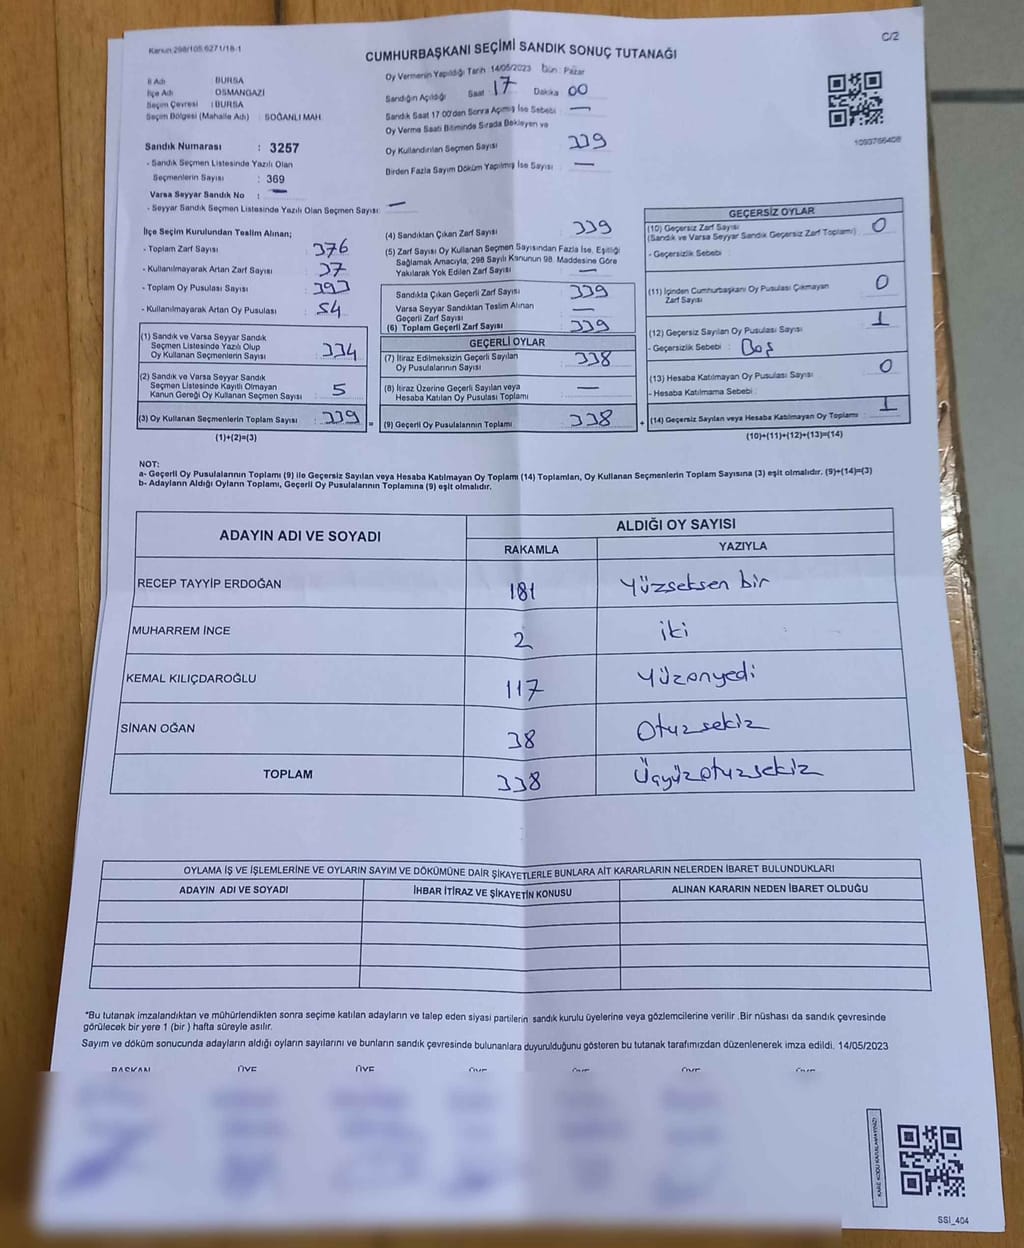 Kanun 298/105.6271/18-1
C/2
CUMHURBAŞKANI SEÇİMİ SANDIK SONUÇ TUTANAĞI
İl Adı BURSA
İlçe Adı OSMANGAZİ
Seçim Çevresi : BURSA
Seçim Bölgesi (Mahalle Adı) : SOĞANLI MAH.
Sandık Numarası : 3257
- Sandık Seçmen Listesinde Yazılı Olan
Seçmenlerin Sayısı : 369
Varsa Seyyar Sandık No : —
- Seyyar Sandık Seçmen Listesinde Yazılı Olan Seçmen Sayısı: —
Oy Vermenin Yapıldığı Tarih 14/05/2023 Gün : Pazar
Sandığın Açıldığı Saat 17 Dakika 00
Sandık Saat 17:00'dan Sonra Açılmış İse Sebebi : —
Oy Verme Saati Bitiminde Sırada Bekleyen ve
Oy Kullandırılan Seçmen Sayısı 339
Birden Fazla Sayım Döküm Yapılmış İse Sayısı : —
1093766408
İlçe Seçim Kurulundan Teslim Alınan;
- Toplam Zarf Sayısı : 376
- Kullanılmayarak Artan Zarf Sayısı : 37
- Toplam Oy Pusulası Sayısı : 393
- Kullanılmayarak Artan Oy Pusulası : 54
(1) Sandık ve Varsa Seyyar Sandık
Seçmen Listesinde Yazılı Olup
Oy Kullanan Seçmenlerin Sayısı : 334
(2) Sandık ve Varsa Seyyar Sandık
Seçmen Listesinde Kayıtlı Olmayan
Kanun Gereği Oy Kullanan Seçmen Sayısı : 5
(3) Oy Kullanan Seçmenlerin Toplam Sayısı : 339
(1)+(2)=(3)
(4) Sandıktan Çıkan Zarf Sayısı : 339
(5) Zarf Sayısı Oy Kullanan Seçmen Sayısından Fazla İse, Eşitliği
Sağlamak Amacıyla, 298 Sayılı Kanunun 98. Maddesine Göre
Yakılarak Yok Edilen Zarf Sayısı : —
Sandıkta Çıkan Geçerli Zarf Sayısı : 339
Varsa Seyyar Sandıktan Teslim Alınan
Geçerli Zarf Sayısı : —
(6) Toplam Geçerli Zarf Sayısı : 339
GEÇERLİ OYLAR
(7) İtiraz Edilmeksizin Geçerli Sayılan
Oy Pusulalarının Sayısı : 338
(8) İtiraz Üzerine Geçerli Sayılan veya
Hesaba Katılan Oy Pusulası Toplamı : —
= (9) Geçerli Oy Pusulalarının Toplamı : 338
GEÇERSİZ OYLAR
(10) Geçersiz Zarf Sayısı
(Sandık ve Varsa Seyyar Sandık Geçersiz Zarf Toplamı) : 0
- Geçersizlik Sebebi :
(11) İçinden Cumhurbaşkanı Oy Pusulası Çıkmayan
Zarf Sayısı : 0
(12) Geçersiz Sayılan Oy Pusulası Sayısı : 1
- Geçersizlik Sebebi : Boş
(13) Hesaba Katılmayan Oy Pusulası Sayısı : 0
- Hesaba Katılmama Sebebi :
+ (14) Geçersiz Sayılan veya Hesaba Katılmayan Oy Toplamı : 1
(10)+(11)+(12)+(13)=(14)
NOT:
a- Geçerli Oy Pusulalarının Toplamı (9) ile Geçersiz Sayılan veya Hesaba Katılmayan Oy Toplamı (14) Toplamları, Oy Kullanan Seçmenlerin Toplam Sayısına (3) eşit olmalıdır. (9)+(14)=(3)
b- Adayların Aldığı Oyların Toplamı, Geçerli Oy Pusulalarının Toplamına (9) eşit olmalıdır.
ADAYIN ADI VE SOYADI ALDIĞI OY SAYISI
RAKAMLA YAZIYLA
RECEP TAYYİP ERDOĞAN 181 Yüzseksen bir
MUHARREM İNCE 2 iki
KEMAL KILIÇDAROĞLU 117 Yüzonyedi
SİNAN OĞAN 38 Otuzsekiz
TOPLAM 338 Üçyüzotuzsekiz
OYLAMA İŞ VE İŞLEMLERİNE VE OYLARIN SAYIM VE DÖKÜMÜNE DAİR ŞİKAYETLERLE BUNLARA AİT KARARLARIN NELERDEN İBARET BULUNDUKLARI
ADAYIN ADI VE SOYADI İHBAR İTİRAZ VE ŞİKAYETİN KONUSU ALINAN KARARIN NEDEN İBARET OLDUĞU
*Bu tutanak imzalandıktan ve mühürlendikten sonra seçime katılan adayların ve talep eden siyasi partilerin sandık kurulu üyelerine veya gözlemcilerine verilir .Bir nüshası da sandık çevresinde
görülecek bir yere 1 (bir ) hafta süreyle asılır.
Sayım ve döküm sonucunda adayların aldığı oyların sayılarını ve bunların sandık çevresinde bulunanlara duyurulduğunu gösteren bu tutanak tarafımızdan düzenlenerek imza edildi. 14/05/2023
BAŞKAN ÜYE ÜYE ÜYE ÜYE ÜYE
KARE KODU KARALAMAYINIZ!
SSI_404